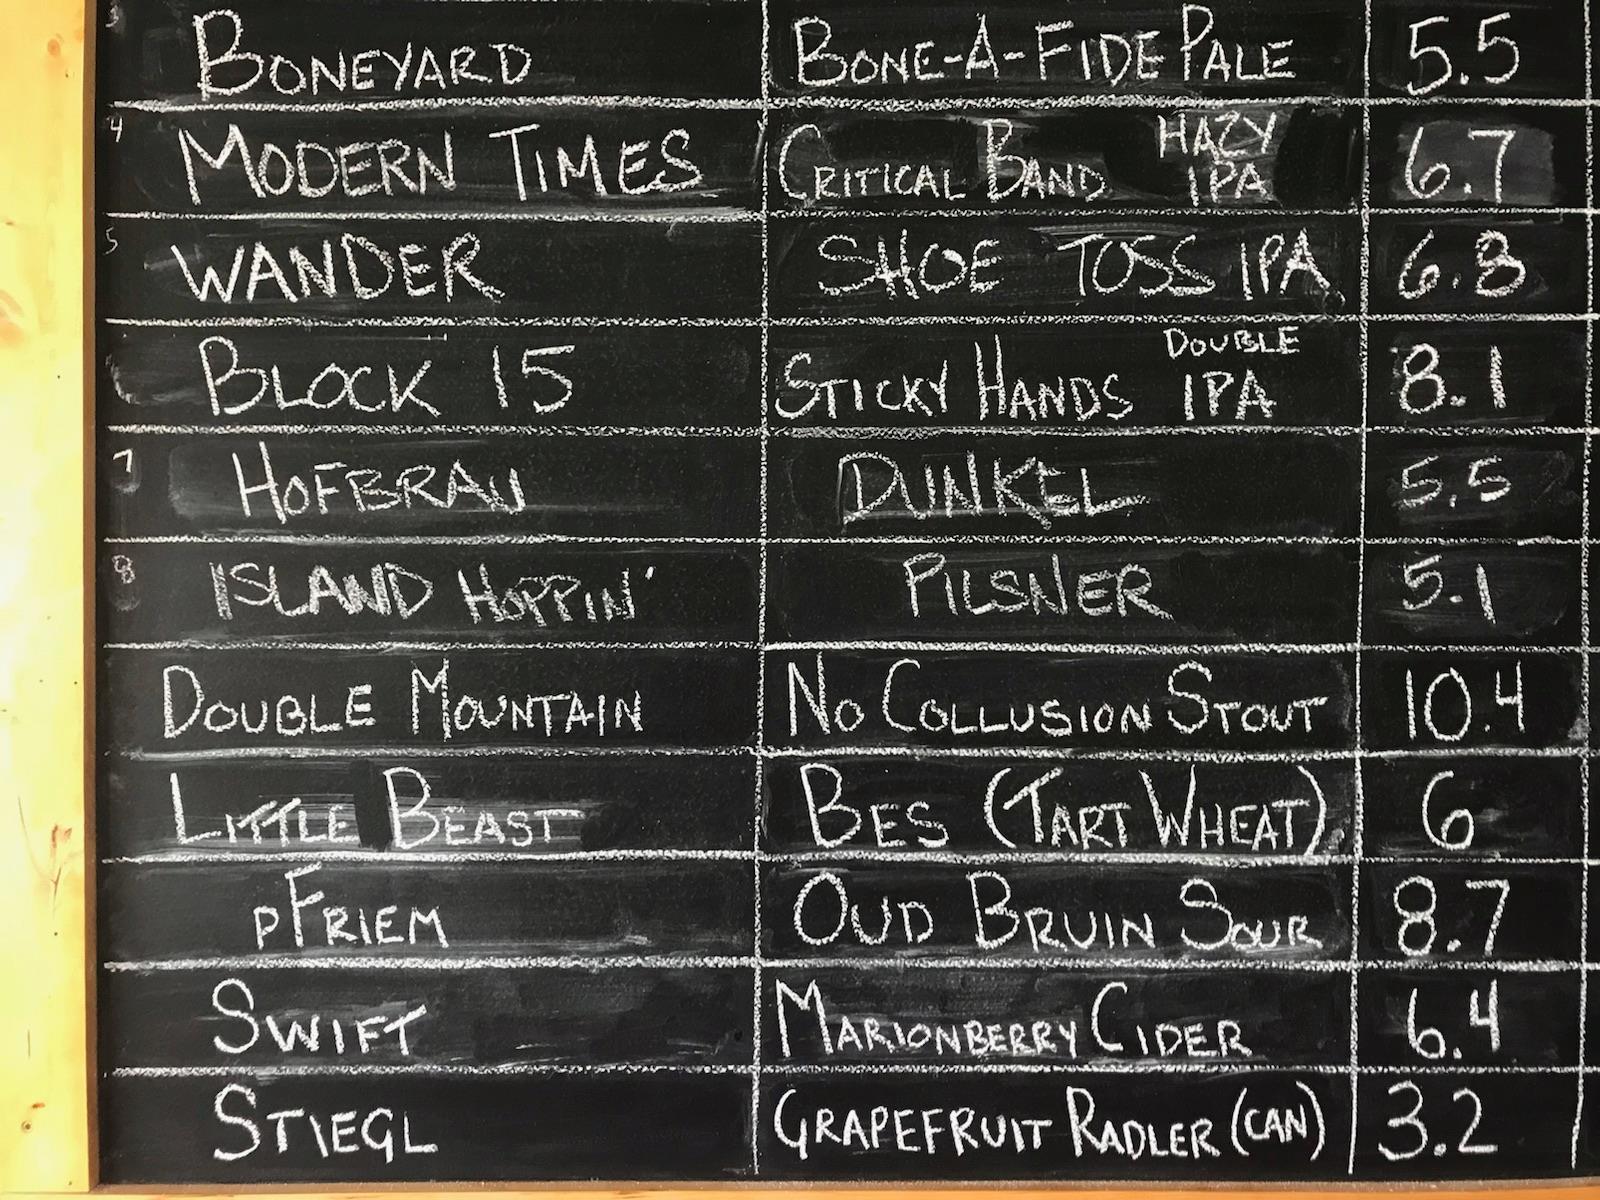 3 BONEYARD BONE-A-FIDE PALE 5.5
4 MODERN TIMES CRITICAL BAND HAZY IPA 6.7
5 WANDER SHOE TOSS IPA 6.8
BLOCK 15 STICKY HANDS DOUBLE IPA 8.1
7 HOFBRAU DUNKEL 5.5
8 ISLAND HOPPIN' PILSNER 5.1
DOUBLE MOUNTAIN NO COLLUSION STOUT 10.4
LITTLE BEAST BES (TART WHEAT) 6
pFRIEM OUD BRUIN SOUR 8.7
SWIFT MARIONBERRY CIDER 6.4
STIEGL GRAPEFRUIT RADLER (CAN) 3.2